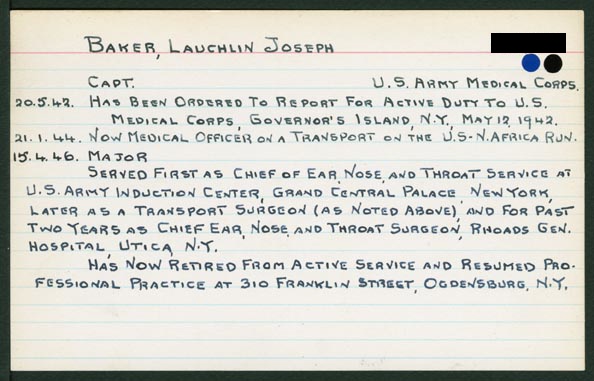 BAKER, LAUCHLIN JOSEPH
CAPT. U.S. ARMY MEDICAL CORPS.
20.5.42. HAS BEEN ORDERED TO REPORT FOR ACTIVE DUTY TO U.S.
MEDICAL CORPS, GOVERNOR'S ISLAND, N.Y., MAY 12, 1942.
21.1.44. NOW MEDICAL OFFICER ON A TRANSPORT ON THE U.S-N.AFRICA RUN.
15.4.46. MAJOR
SERVED FIRST AS CHIEF OF EAR, NOSE, AND THROAT SERVICE AT
U.S. ARMY INDUCTION CENTER, GRAND CENTRAL PALACE, NEW YORK,
LATER AS A TRANSPORT SURGEON (AS NOTED ABOVE), AND FOR PAST
TWO YEARS AS CHIEF EAR, NOSE, AND THROAT SURGEON, RHOADS GEN.
HOSPITAL, UTICA, N.Y.
HAS NOW RETIRED FROM ACTIVE SERVICE AND RESUMED PRO-
FESSIONAL PRACTICE AT 310 FRANKLIN STREET, OGDENSBURG, N.Y.